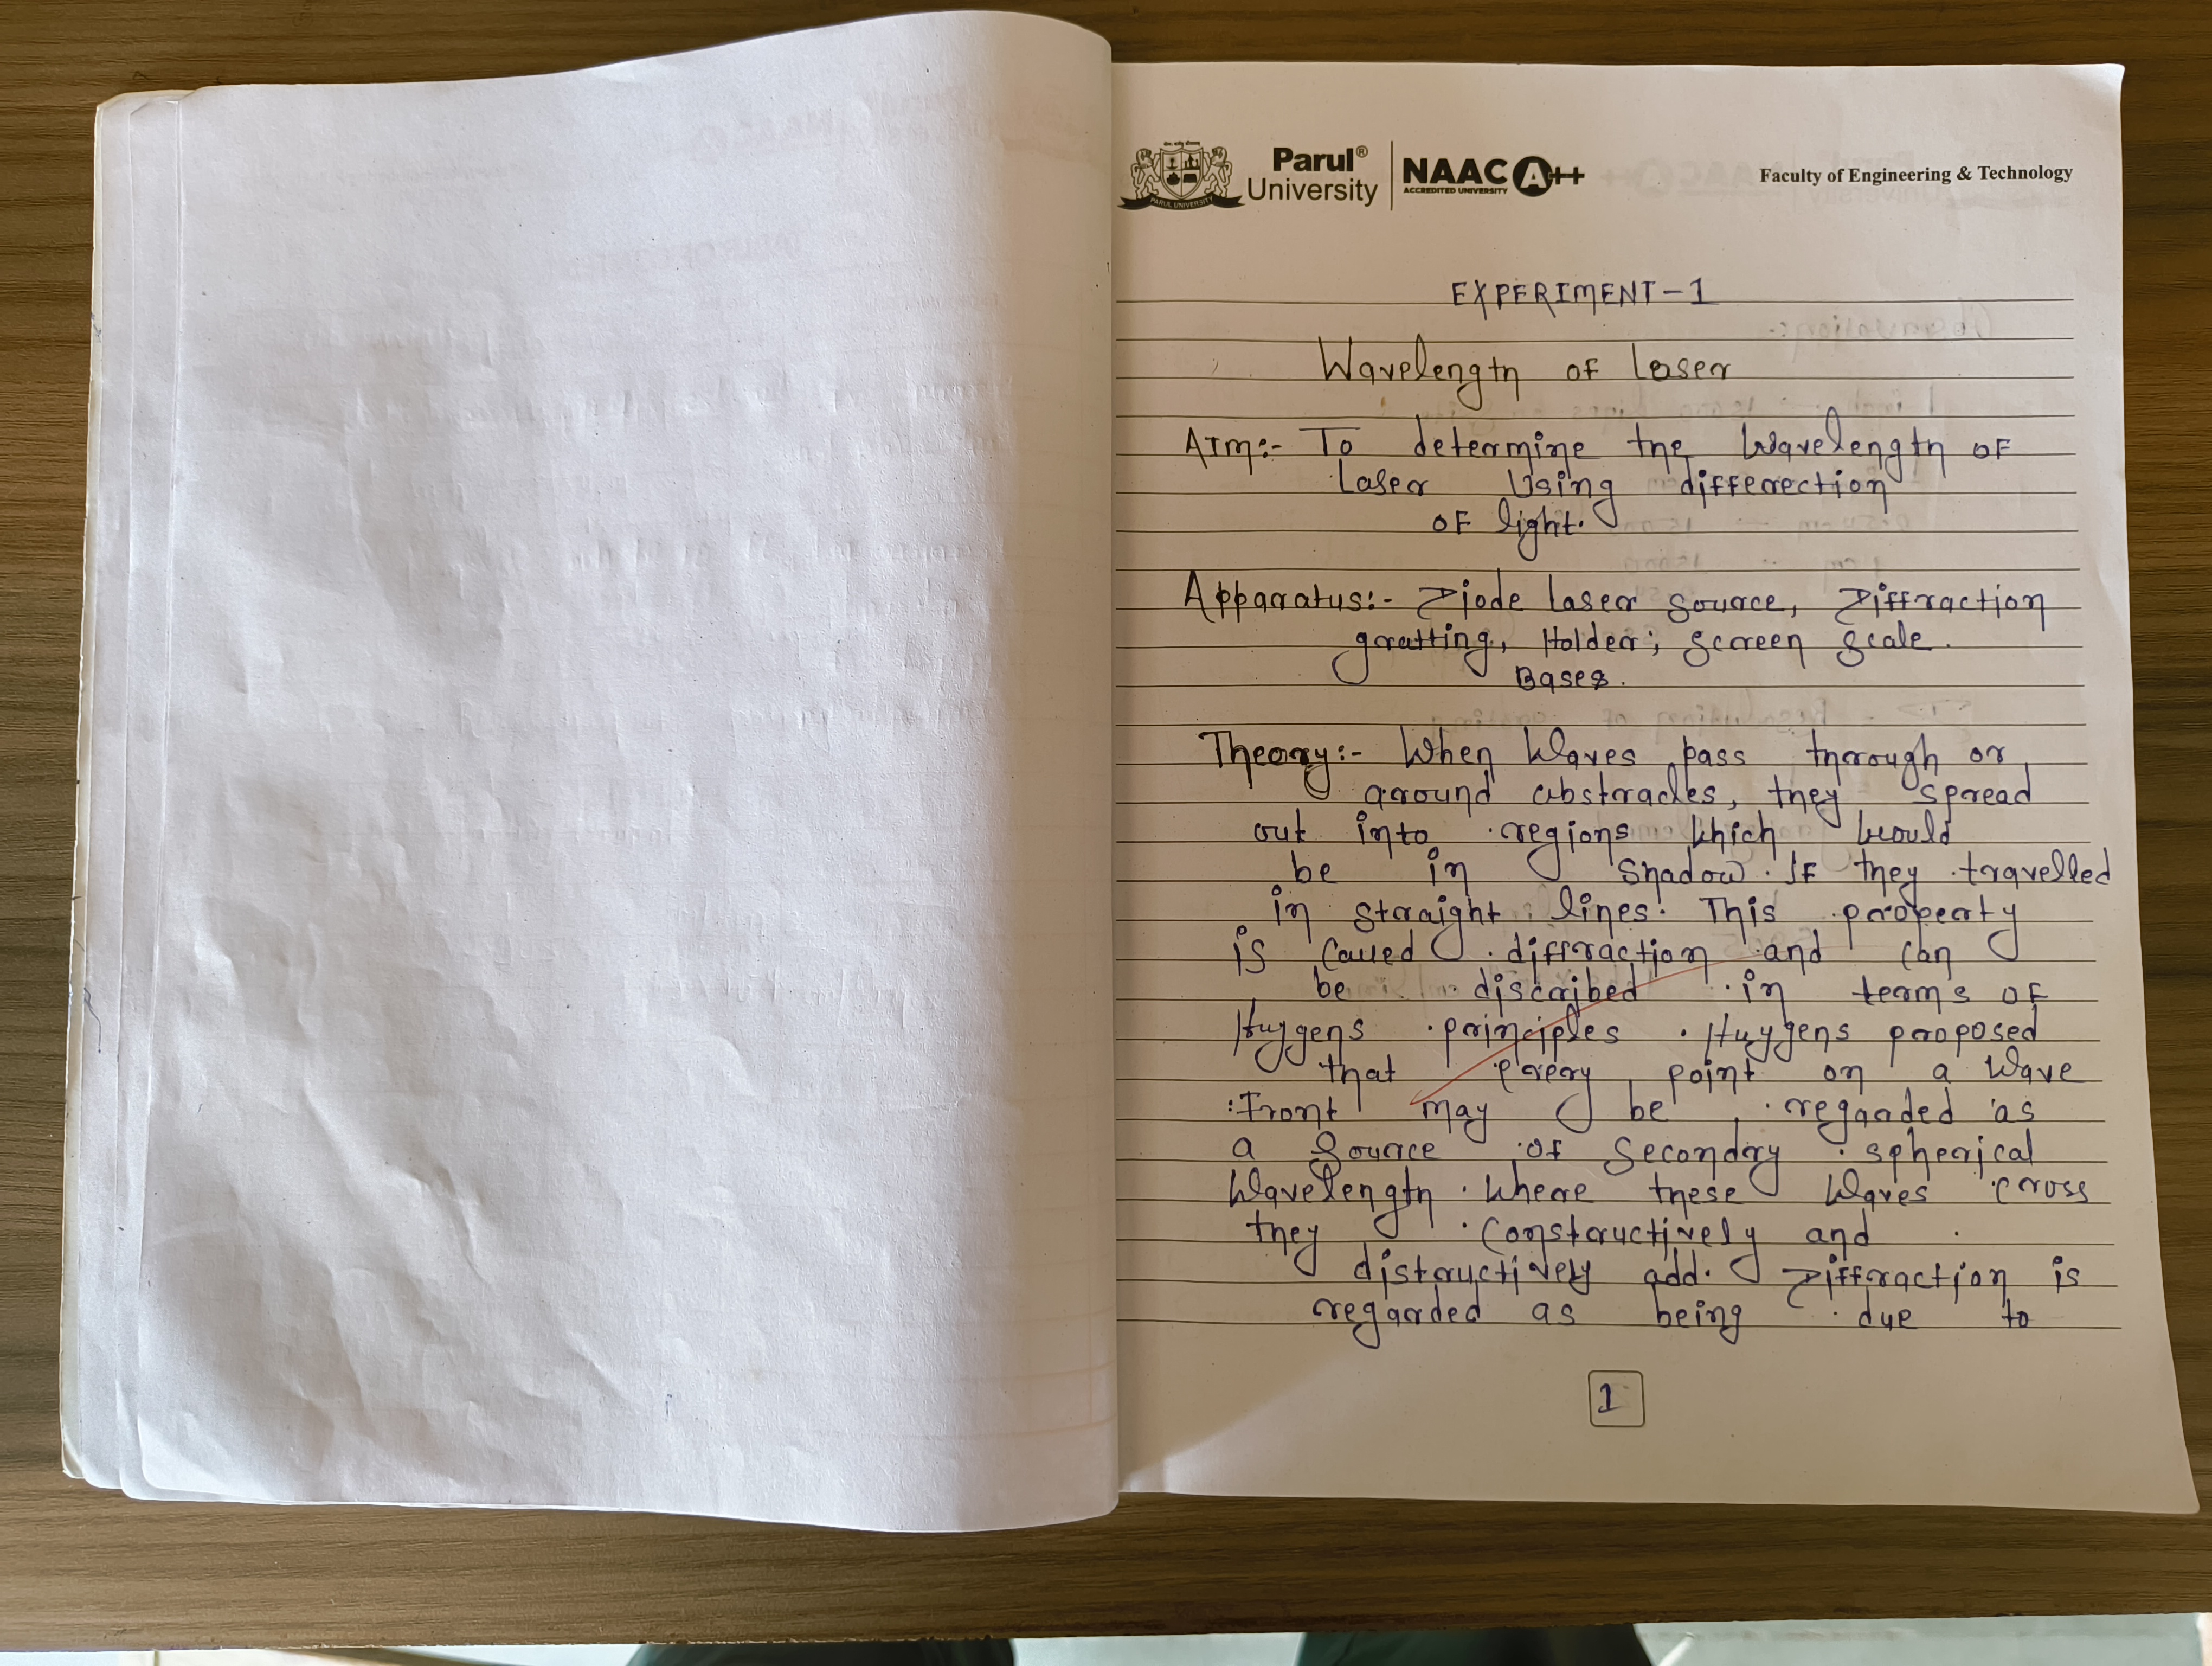 Parul® University
NAAC A++
ACCREDITED UNIVERSITY
PARUL UNIVERSITY
Faculty of Engineering & Technology
EXPERIMENT-1
Wavelength of Laser
AIm:- To determine the Wavelength OF
Laser Using differection
OF light.
Apparatus:- Diode Laser source, Diffraction
gratting, Holder; Screen Scale.
Bases.
Theory:- When Waves pass through or
around abstracles, they spread
out into regions which would
be in Shadow. If they travelled
in straight lines. This property
is called diffraction and can
be discribed in terms OF
Huygens principles. Huygens proposed
that every point on a Wave
Front may be regarded as
a Source of Secondry spherical
Wavelength. Where these Waves cross
they constructively and
distructively add. Diffraction is
regarded as being due to
1